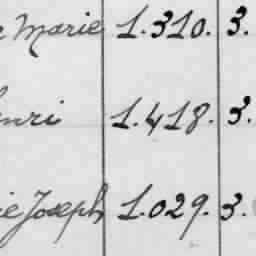 Marie 1.310. 3.
1.418. 3.
Joseph 1.029. 3.